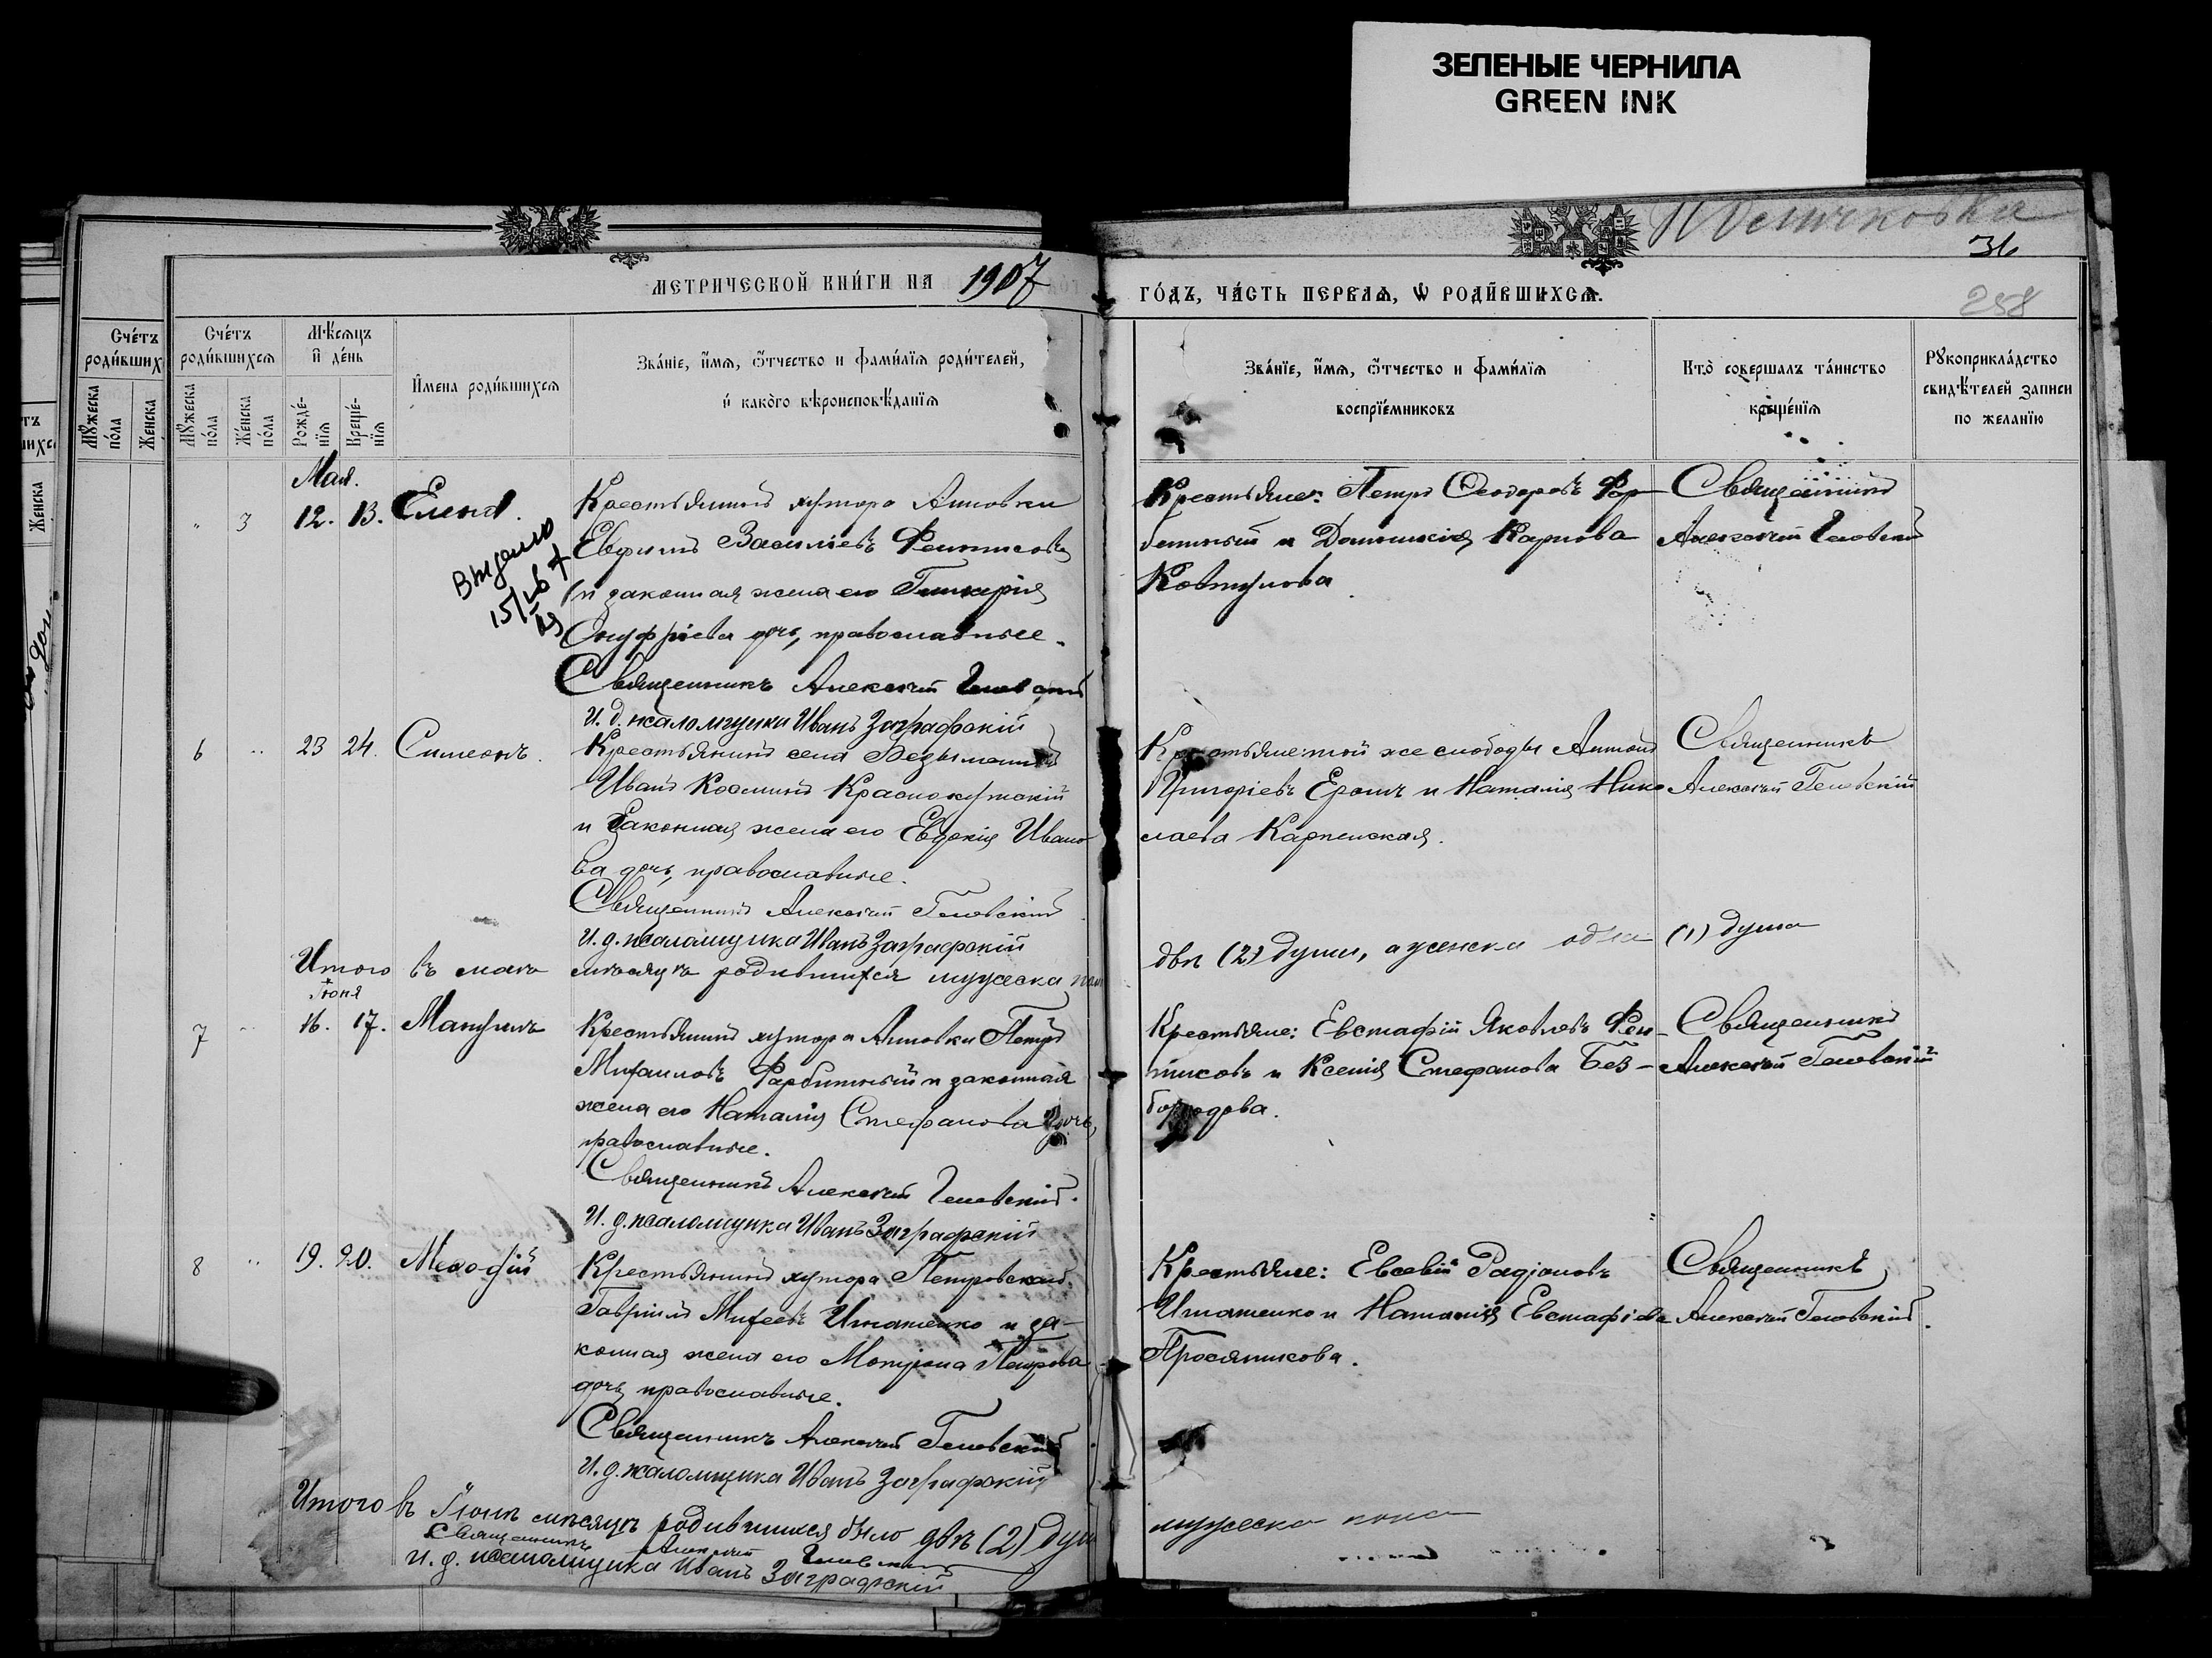 ЗЕЛЕНЫЕ ЧЕРНИЛА
GREEN INK
36
258
МЕТРИЧЕСКОЙ КНИ́ГИ НА 1907
ГО́ДЪ, ЧА́СТЬ ПЕРВАѦ, Ѡ РОДИ́ВШИХСѦ.
Сче́тъ родившихсѧ
Мꙋ́жеска по́ла
Же́нска по́ла
Мѣ́сѧцъ и де́нь
Рожде́-нїѧ
Креще́-нїѧ
И҆мена роди́вшихсѧ
Зва́нїе, и҆мѧ, Ѻтчество и Фами́лїѧ роди́телей,
и како́го вѣроисповѣ́данїѧ
Зва́нїе, и҆мѧ, Ѻтчество и Фами́лїѧ
воспрїе́мниковъ
Кто̀ соверша́лъ та́инство
креще́нїѧ
Рꙋкоприкла́дство
свидѣ́телей записи
по жела́нїю
Мая.
3 12. 13. Елена.
Крестьянинъ хутора Анновки
Евфимъ Василіевъ Фентисовъ
и законная жена его Гликерія
Онуфріева дочь, православные.
Священникъ Алексій
И. д. псаломщика Иванъ Заграфскій
Крестьяне: Петръ Ѳеодоровъ Фар-
битный и Домникія Карпова
Ковтунова
Священникъ
Алексій
6 23 24. Симеонъ.
Крестьянинъ села
Иванъ Косминъ Краснокутскій
и законная жена его Евдокія Ивано-
ва дочь, православные.
Священникъ Алексій
И. д. псаломщика Иванъ Заграфскій
Крестьяне той же слободы Антонъ
Григоріевъ Ерошъ и Наталія Нико
лаева Карпенская.
Священникъ
Алексій
Итого въ маѣ мѣсяцѣ родившихся мужеска пола
двѣ (2) души, а женска одна (1) душа
Іюня
7 16. 17. Мануилъ
Крестьянинъ хутора Анновки Петръ
Михаиловъ Фарбитный и законная
жена его Наталія Стефанова дочь,
православные.
Священникъ Алексій
И. д. псаломщика Иванъ Заграфскій
Крестьяне: Евстафій Яковлевъ Фен-
тисовъ и Ксенія Стефанова Без-
бородова.
Священникъ
Алексій
8 19. 20. Меѳодій
Крестьянинъ хутора Петровскаго
Гавріилъ Михеевъ Игнатенко и за-
конная жена его Матрона Петрова
дочь православные.
Священникъ Алексій
И. д. псаломщика Иванъ Заграфскій
Крестьяне: Евсевій Радіоновъ
Игнатенко и Наталія Евстафіева
Просяникова.
Священникъ
Алексій
Итого въ Іюнѣ мѣсяцѣ родившихся было двѣ (2) души
мужеска пола
Священникъ Алексій
И. д. псаломщика Иванъ Заграфскій